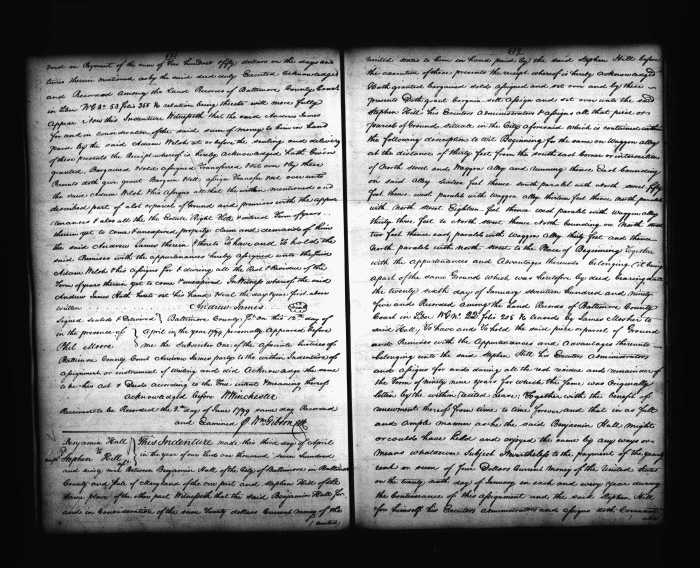 void on Payment of the sum of Two hundred fifty dollars on the days and
times therein mentioned as by the said deed duly Executed acknowledged
and Recorded Among the Land Records of Baltimore County Court
in Liber W G No. 53 folio 355 &c relation being thereto will more fully
Appear Now this Indenture Witnesseth that the said Andrew James
for and in consideration of the said sum of money to him in hand
paid by the said Adam Welsh at or before the sealing and delivery
of these presents the Receipt whereof is hereby Acknowledged hath
granted, Bargained
Presents doth give grant Bargain Sell, assign Transfer & set over unto
the said Adam Welsh His Assigns all that the within mentioned and
described part of a lot or parcel of Ground and premises with the appur
tenances & also all the the Estate Right Title & interest Term of years
therein yet to come & unexpired, property claim and demands of him
the said Andrew James therein & thereto To have and To hold the
said Premises with the appurtenances hereby assigned unto the said
Adam Welsh & his Assigns for & during all the Rest & Residue of the
Term of years therein yet to come & unexpired In Witness whereof the said
Andrew James Hath hereto set his hand & seal the day & year first above
written Andrew James
Signed Sealed & Delivered } Baltimore County Sc. On this 12th day of
in the presence of } April in the year 1799 personally Appeared before
Phil Moore } me the Subscriber One of the Associate Justices of
Baltimore County Court Andrew James party to the within Indenture of
assignment or instrument of writing and did Acknowledge the same
to be his Act & Deed According to the True intent & meaning thereof
acknowledged before W Winchester
Received to be Recorded the 3d day of June 1799 same day Recorded
and Examined & Wm Gibson Clk
Benjamin Hall } This Indenture made this third day of April
To } in the year of our Lord one thousand seven hundred
Stephen Hill }
and ninety nine Between Benjamin Hall of the City of Baltimore in Baltimore
County and State of Maryland of the one part and Stephen Hill of the
same place of the other part Witnesseth that the said Benjamin Hall for
and in Consideration of the sum Twenty dollars Current money of the
United
united states to him in hand paid by the said Stephen Hill before
the execution of these presents the receipt whereof is hereby acknowledged
Hath granted bargained sold assigned and set over and by these
presents Doth grant bargain sell Assign and set over unto the said
Stephen Hill his Executors Administrators & assigns all that piece or
parcel of Ground situate in the City aforesaid which is contained within
the following description to wit Beginning for the same on Waggon alley
at the distance of thirty feet from the south east Corner or intersection
of North street and Waggon Alley and running thence East bounding
on said Alley sixteen feet thence south parallel with North street fifty
feet thence west parallel with Waggon Alley thirteen feet thence north parallel
with North street Eighteen feet thence west parallel with Waggon alley
thirty three feet to North street thence North bounding on North street
two feet thence east parallel with Waggon Alley thirty feet and thence
North parallel with North street to the Place of Beginning Together
with the appurtenances and Advantages thereunto belonging (it being
a part of the same Ground which was heretofore by deed bearing date
the twenty sixth day of January seventeen hundred and ninety
five and Recorded Among the Land Records of Baltimore County
Court in Liber W G No. 22 folio 205 &c leased by James Mosher to
said Hall, To have and To hold the said piece or parcel of Ground
and Premises with the Appurtenances and Advantages thereunto
belonging unto the said Stephen Hill his Executors Administrators
and assigns for and during all the rest residue and remainder of
the Term of ninety nine years for which the same was Originally
letten by the within recited lease: Together with the benefit of
renewment thereof from time to time forever and that in as full
and ample manner as he the said Benjamin Hall might
or could have held and enjoyed the same by any ways or
means whatsoever Subject Nevertheless to the payment of the yearly
rent or sum of four Dollars Current Money of the United States
on the twenty sixth day of January in each and every year during
the Continuance of this assignment and the said Stephen Hill
for himself his Executors administrators and assigns doth Covenant